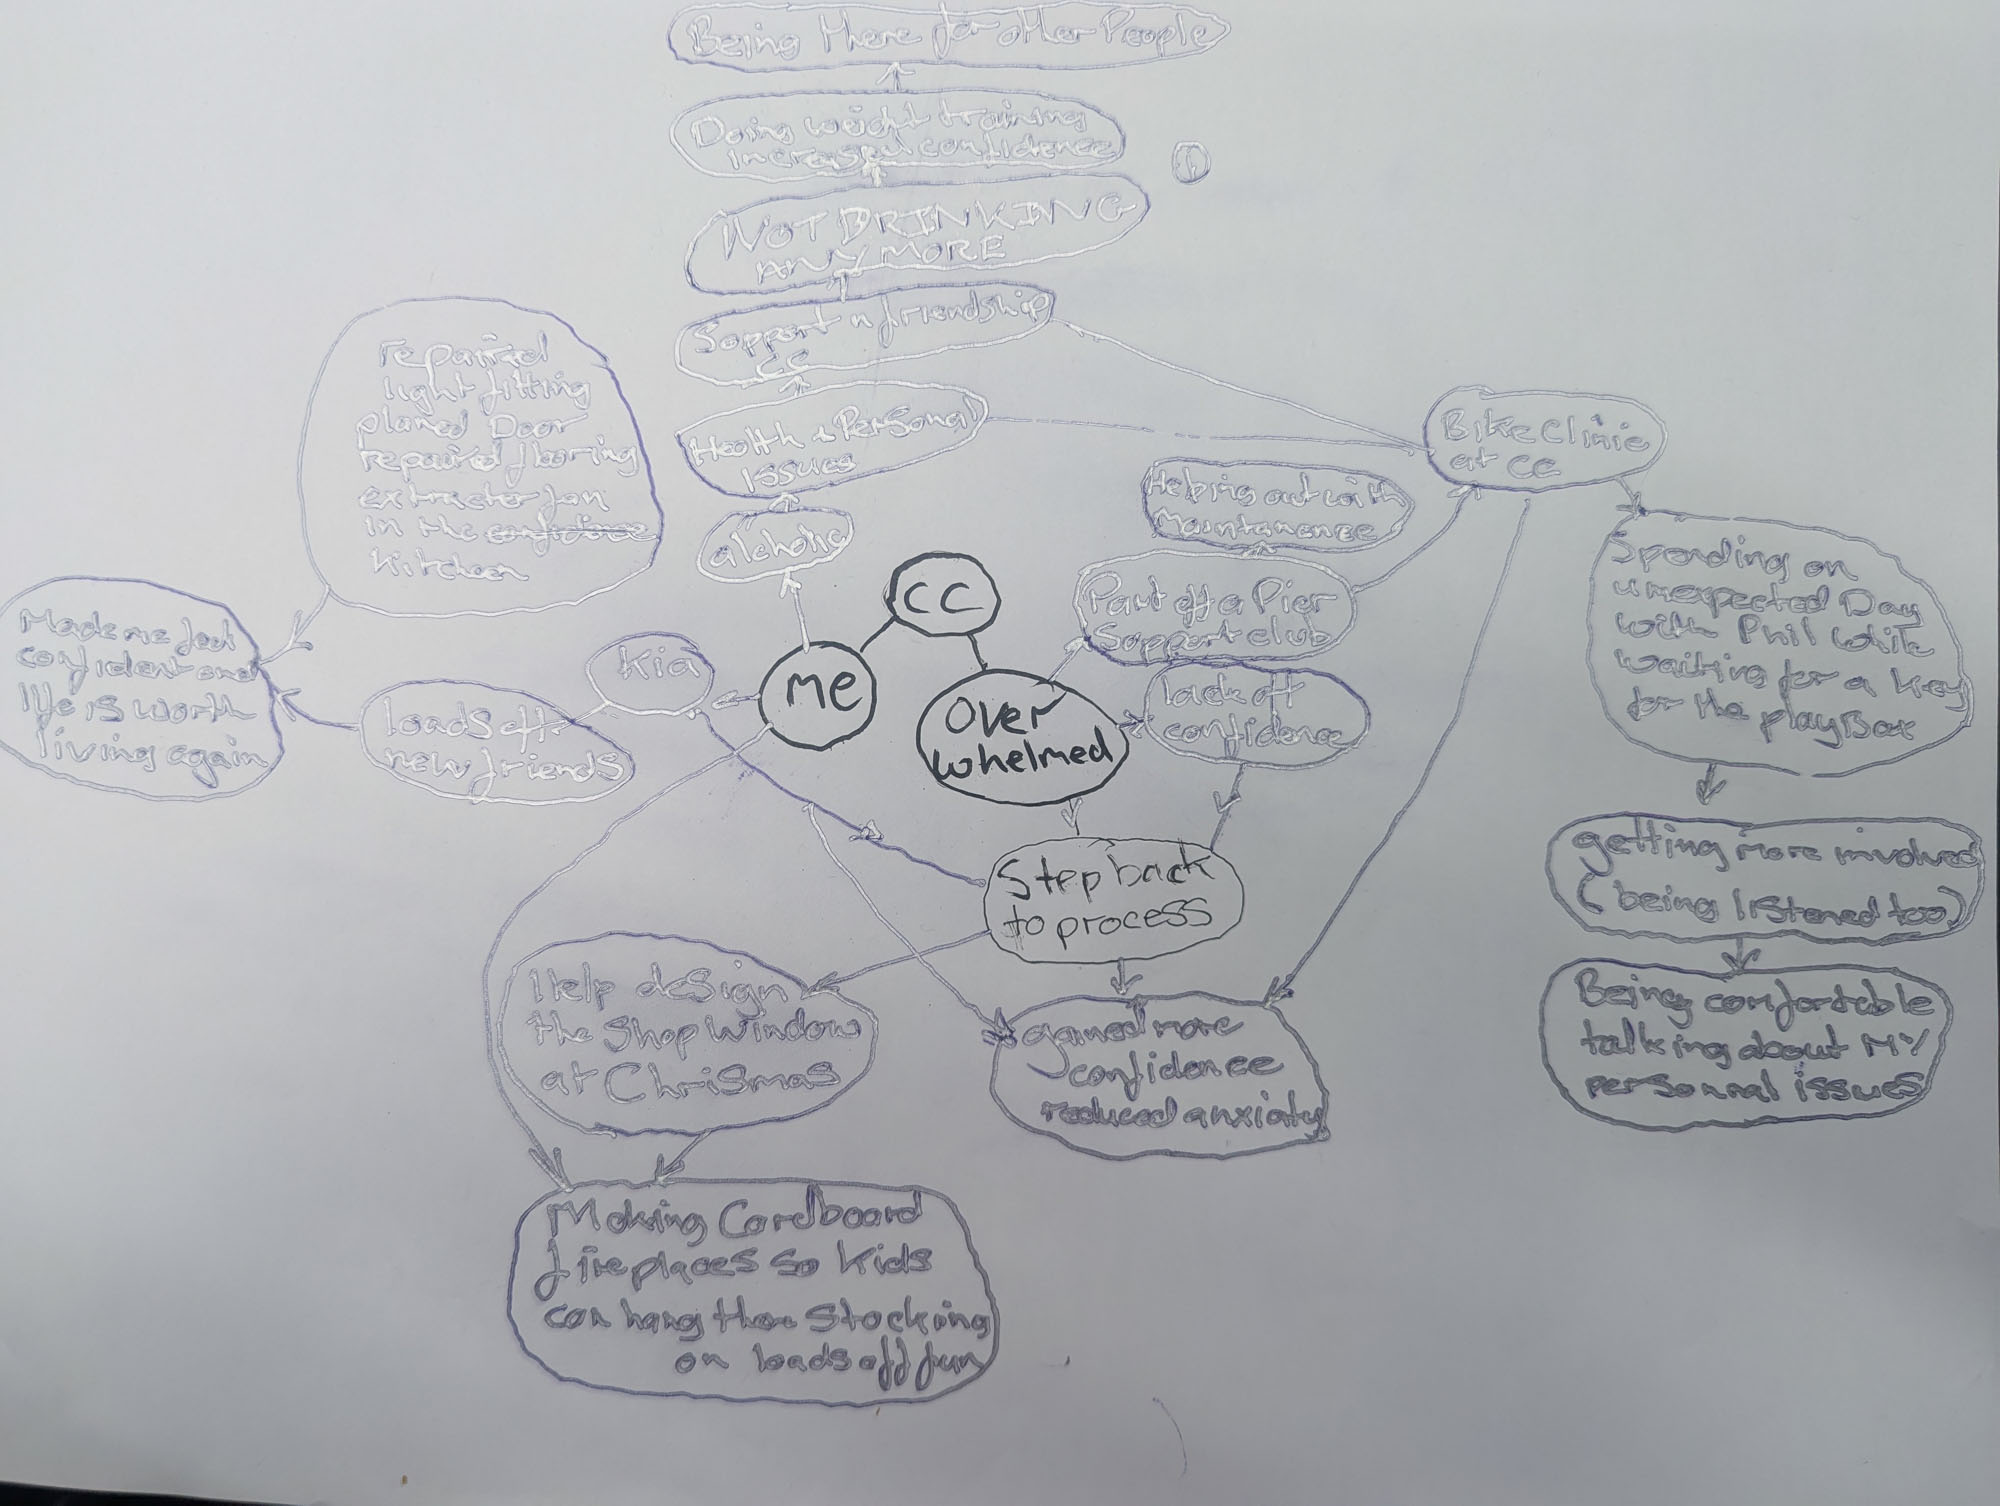 Being there for other People
Doing weight training
increased confidence
NOT DRINKING
ANYMORE
Support n friendship
CC
Health + Personal
issues
alcholic
repaired
light fitting
planed Door
repaired flooring
extractor fan
in the confidence
Kitchen
Made me feel
confident and
life is worth
living again
loads off
new friends
Kia
me
CC
Over
whelmed
Part off a Pier
Support club
Helping out with
Maintanence
lack off
confidence
Bike Clinic
at CC
Spending on
unexpected Day
with Phil while
waiting for a key
for the playBox
getting more involved
(being listened too)
Being comfortable
talking about MY
personal issues
Step back
to process
gained more
confidence
reduced anxiaty
Help design
the Shop Window
at Chrismas
Making Cardboard
fireplaces so kids
can hang there Stocking
on loads off fun